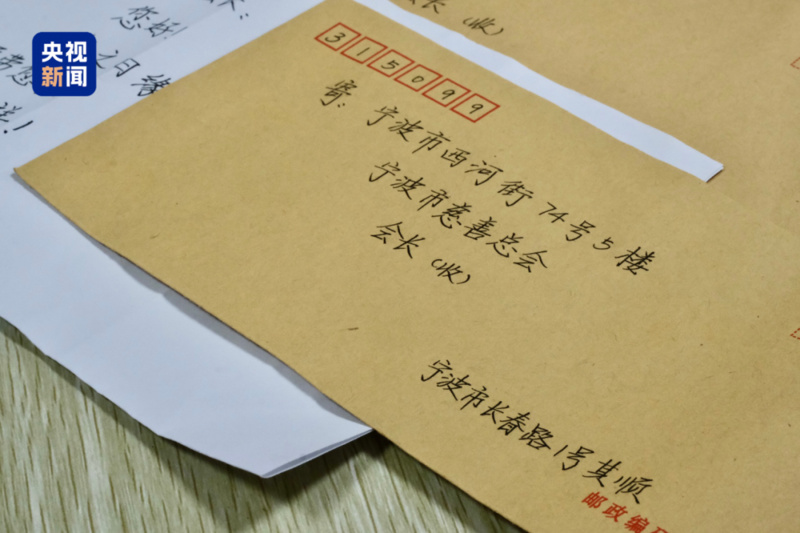 央视
新闻
长（收）
您好！
说！
315099
寄：宁波市西河街74号5楼
宁波市慈善总会
会长（收）
宁波市长春路1号其顺
邮政编